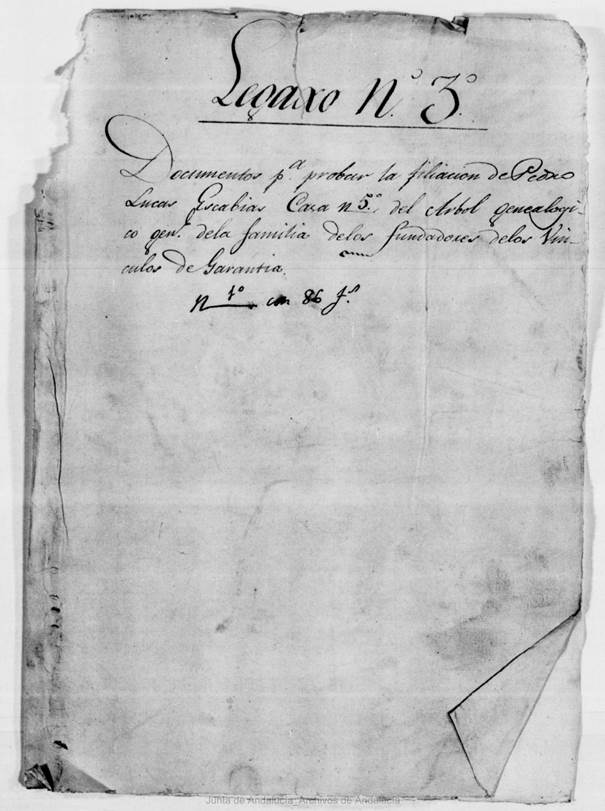 Legaxo N.º 3.º
Documentos p.ª probar la filiacion de Pedro
Lucas Escabias Caxa n 5.º, del Arbol genealogi-
co gen.l dela familia delos fundadores delos Vin-
culos de Garantia.
N 1º con 86 f.s
Junta de Andalucía. Archivos de Andalucía